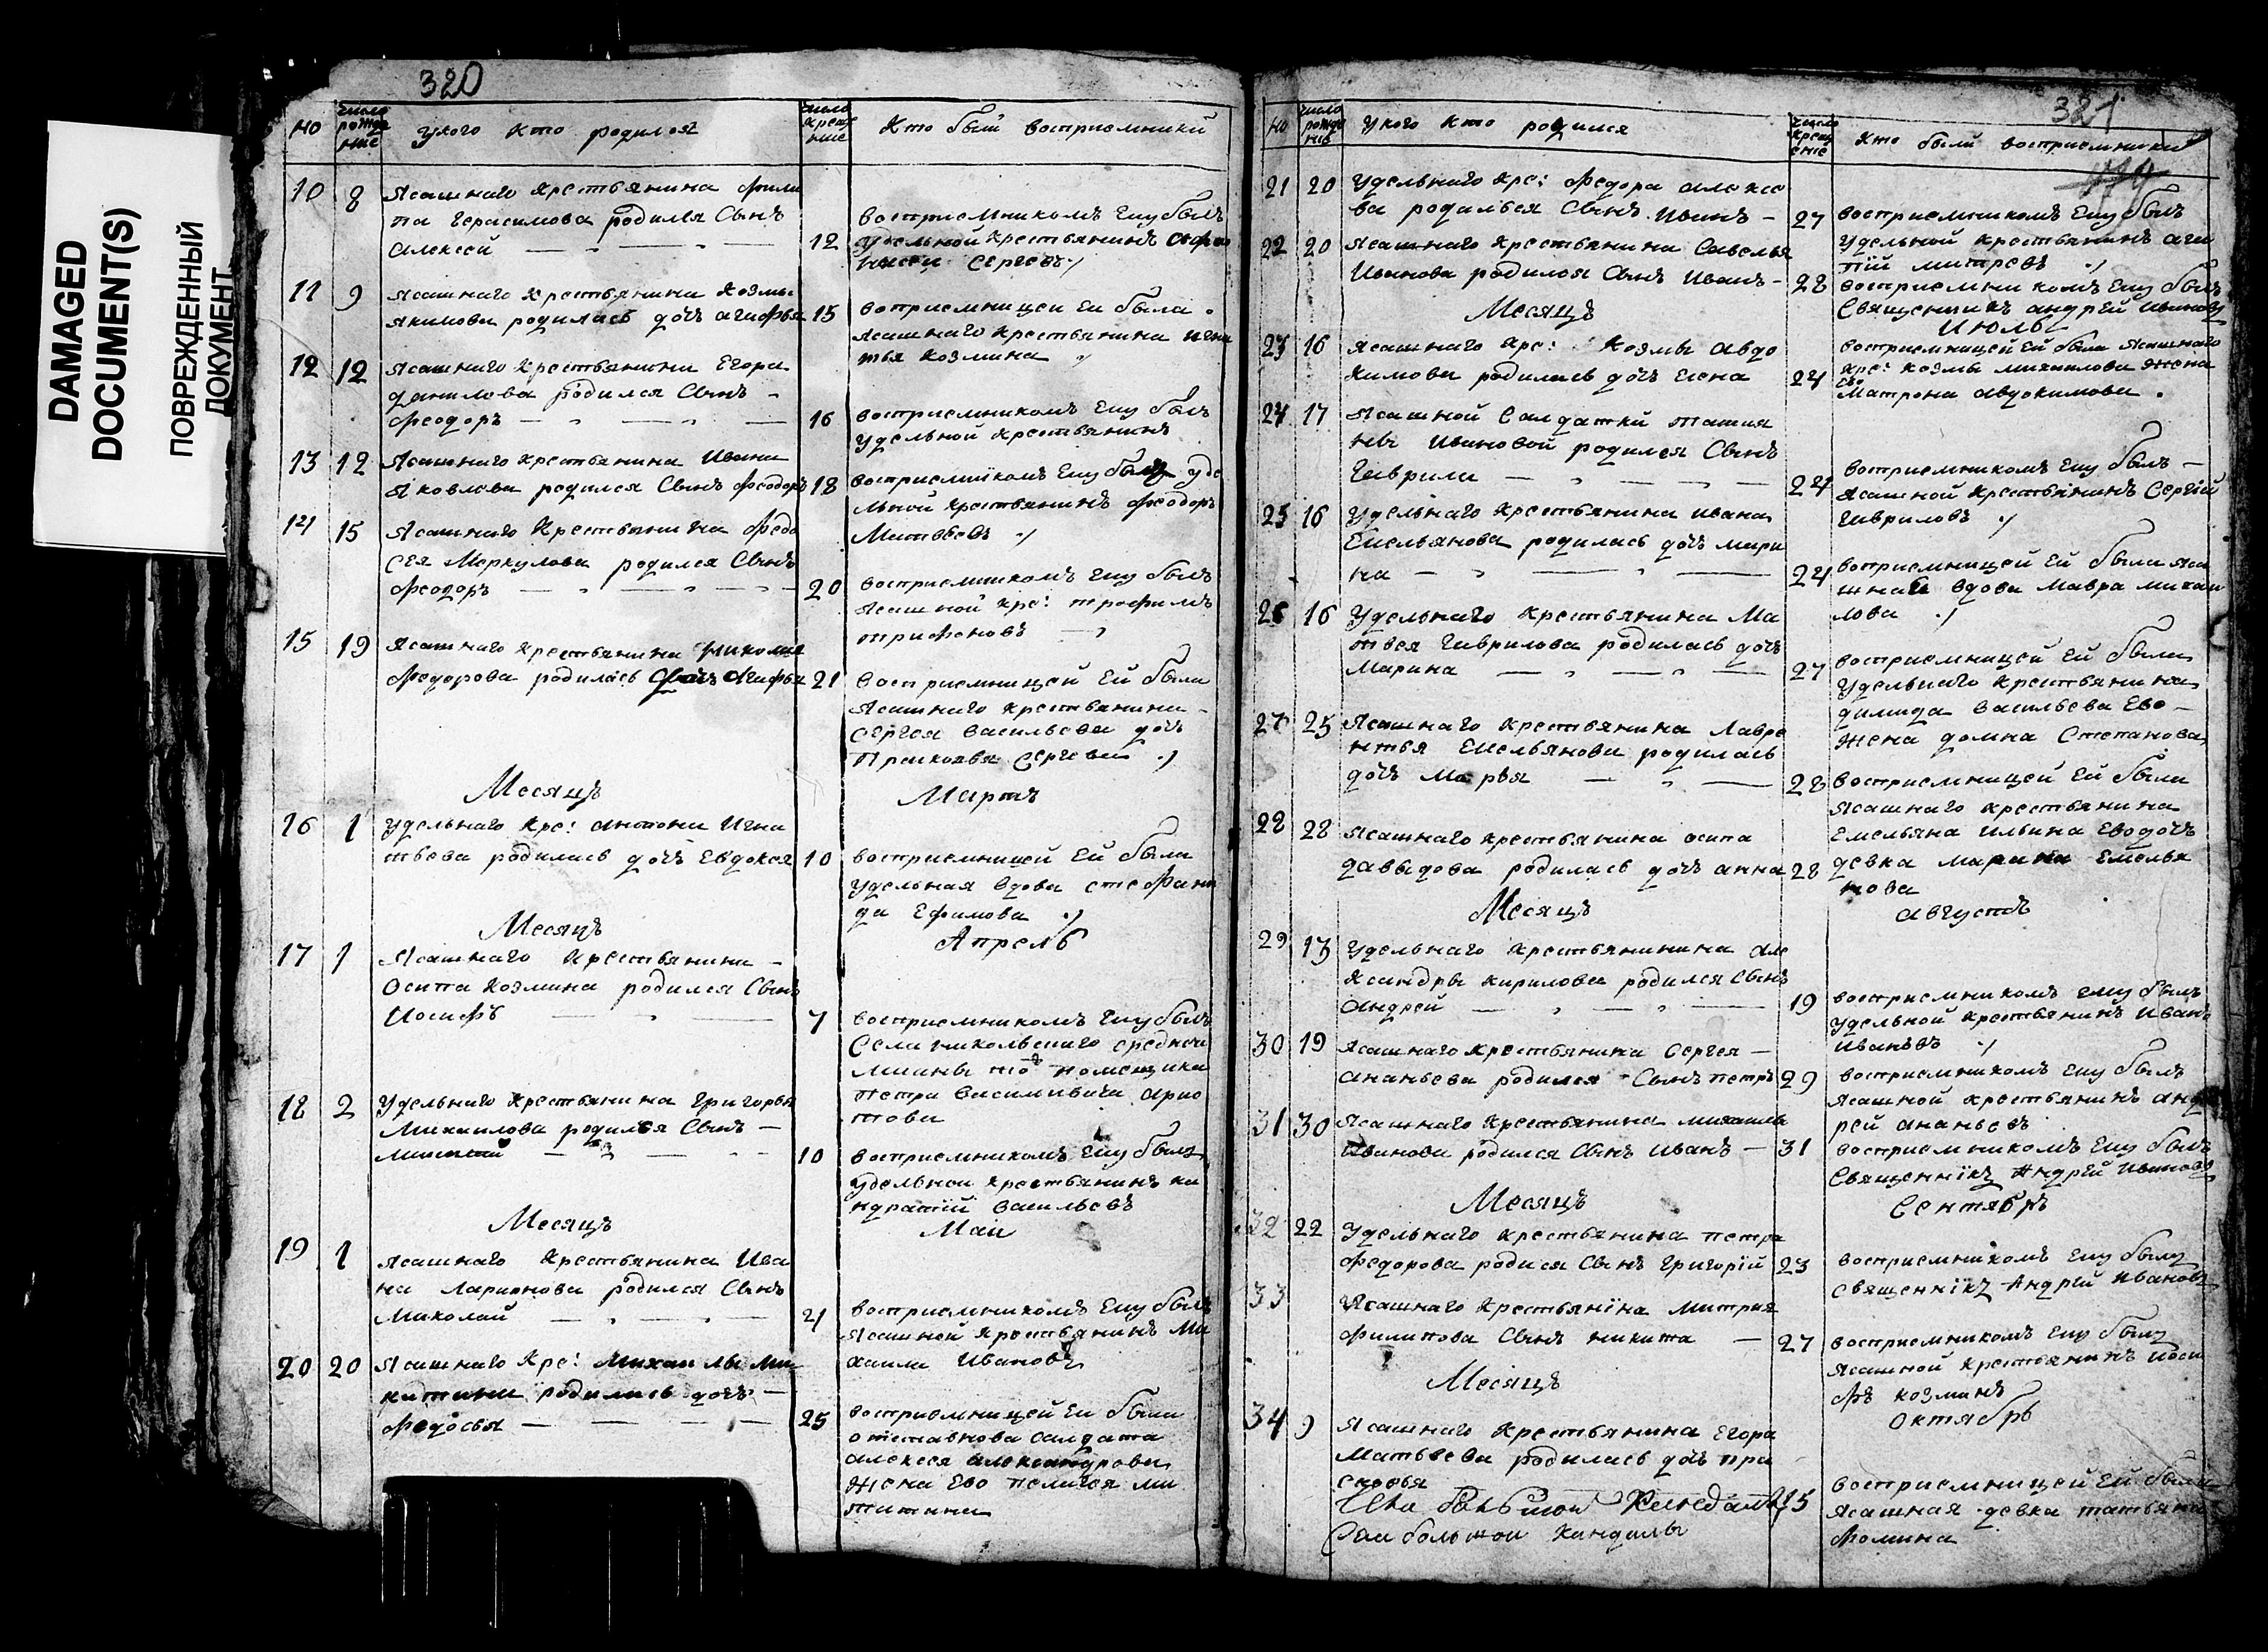 DAMAGED
DOCUMENT(S)
ПОВРЕЖДЕННЫЙ
ДОКУМЕНТ
320
но
число рожде ние
у кого кто родился
число крещ ение
кто были восприемники
10 8 Ясашнаго крестьянина Фили
па Герасимова родился Сынъ
Алексей
12 восприемникомъ Ему былъ
удельной крестьянинъ Афа
насеи Сергевъ
11 9 Ясашнаго крестьянина Козмы
Якимова родилась дочъ Агафья
15 восприемницеи Еи была
Ясашнаго крестьянина Игна
тья Козмина
12 12 Ясашнаго крестьянина Егора
данилова родился Сынъ
Феодоръ
16 восприемникомъ Ему былъ
удельной крестьянинъ
13 12 Ясашнаго крестьянина Ивана
Яковлева родился Сынъ Феодоръ
18 восприемникомъ Ему былъ уде
льной крестьянинъ Феодоръ
Матвеевъ
14 15 Ясашнаго Крестьянина Федо
сея Меркулова родился Сынъ
Феодоръ
20 восприемникомъ Ему былъ
Ясашной кре: трофимъ
трифоновъ
15 19 Ясашнаго крестьянина Николая
Федорова родилась дочъ Агафья
21 восприемницей Ей была
Ясашнаго крестьянина
Сергея Васильева дочъ
Прасковья Сергева
Месяцъ Мартъ
16 1 Удельнаго кре: антона Игна
тьева родилась дочъ Евдокея
10 восприемницей Ей была
Удельная вдова стефани
да Ефимова
Месяцъ Апрель
17 1 Ясашнаго крестьянина
Осипа Козмина родился Сынъ
Иосифъ
7 восприемникомъ Ему былъ
Села никольскаго средней
помещика
петра Василивича
18 2 Удельнаго крестьянина Григорья
Михаилова родился Сынъ
10 восприемникомъ Ему былъ
Удельнои крестьянинъ ка
ндратiй Васильевъ
Месяцъ Маи
19 1 Ясашнаго Крестьянина Ива
на Ларионова родился Сынъ
Миколай
21 восприемникомъ Ему былъ
Ясашной крестьянинъ Ми
хаила Ивановъ
20 20 Ясашнаго Кре: Михаилы Ми
китина родилась дочъ
Федосья
25 восприемницей Еи была
отставнова Салдата
Алексея александрова
Жена Ево пелагея ми
тина
321
но
число рожде ние
у кого кто родился
число крещ ение
кто были восприемники
21 20 Удельнаго кре: Федора алексе
ва родилься Сынъ Иванъ
27 восприемникомъ Ему былъ
удельной крестьянинъ ага
пiй митревъ
22 20 Ясашнаго крестьянина Савелья
Иванова родился Сынъ Иванъ
28 восприемникомъ Ему былъ
Священникъ андрей Ивановъ
Месяцъ Июль
23 16 Ясашнаго кре: Козмы Авдо
кимова родилась дочъ Елена
24 восприемницей Ей была Ясашнаго
кре: козмы михаилова жена
Матрона авдокимова
24 17 Ясашной Салдатки татия
ны Ивановой родился Сынъ
Гаврила
24 восприемникомъ Ему былъ
Ясашной крестьянинъ Сергiй
Гавриловъ
25 16 Удельнаго крестьянина ивана
Емельянова родилась дочъ мари
на
24 восприемницей Ей была Яса
шная вдова Мавра михаи
лова
26 16 Удельнаго Крестьянина Ма
твея Гаврилова родилась дочъ
Марина
27 восприемницей Ей была
Удельнаго крестьянина
димида Васильева Ево
жена домна Степанова
27 25 Ясашнаго крестьянина Лавре
нтья Емельянова родилась
дочъ Марья
28 восприемницей Ей была
Ясашнаго крестьянина
Емельяна ильина Ево дочъ
девка Марина Емелья
нова
28 28 Ясашнаго крестьянина осипа
давыдова родилась дочъ анна 28
Месяцъ августъ
29 13 Удельнаго крестьянинина Але
ксандры кирилова родился Сынъ
Андрей
19 восприемникомъ ему былъ
Удельной крестьянинъ Иванъ
Иванъвъ
30 19 Ясашнаго крестьянина Сергея
Ананьева родился Сынъ петръ
29 восприемникомъ Ему былъ
Ясашной крестьянинъ анд
рей ананьевъ
31 30 Ясашнаго Крестьянина михаила
Иванова родился Сынъ Иванъ
31 восприемникомъ Ему былъ
Священнiкъ Андрей Ивановъ
Месяцъ Сентябръ
32 22 Удельнаго крестьянина петра
Федорова родися Сынъ Григорiй
23 восприемникомъ Ему былъ
священнiкъ Андрей Ивановъ
33 Ясашнаго крестьянiна Митрия
Филипова Сынъ никита
27 восприемникомъ Ему былъ
Ясашной крестьянинъ иоси
фъ козминъ
Месяцъ октябръ
34 9 Ясашнаго крестьянина Егора
Матвеева родилась дочъ пра
сковья
15 восприемницей Ей была
Ясашная девка татьяна
Фомина
Села большои Кандалы